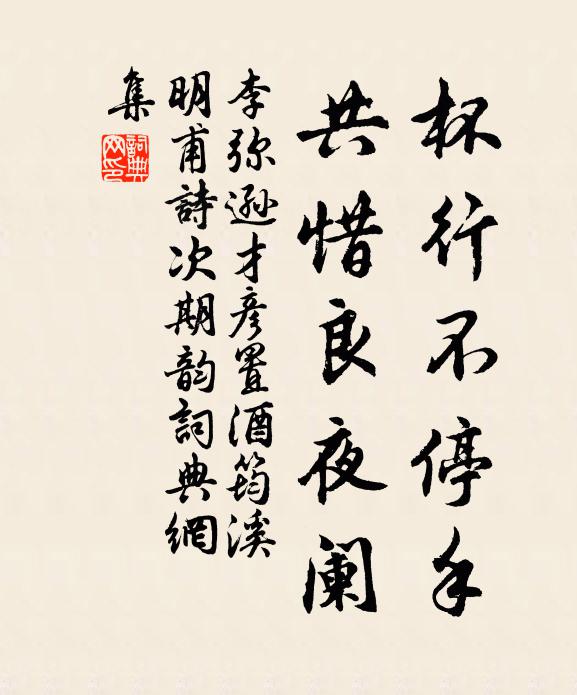 杯行不停手
共惜良夜阑
李弥遜才彦置酒筠溪
明甫詩次期韵詞典網
集
詞典网印